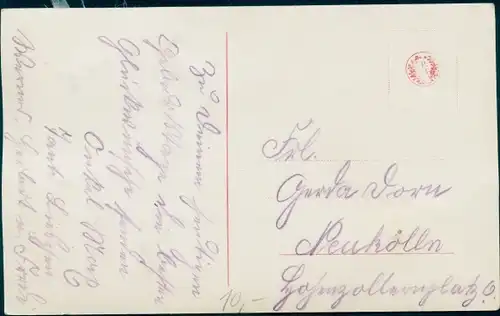 Zu Deinem heutigen
Geburtstage die besten
Glückwünsche senden
Onkel Max
Tante Lieschen
Frl.
Gerda Dorn
Neukölln
Hohenzollernplatz 6.
10,-